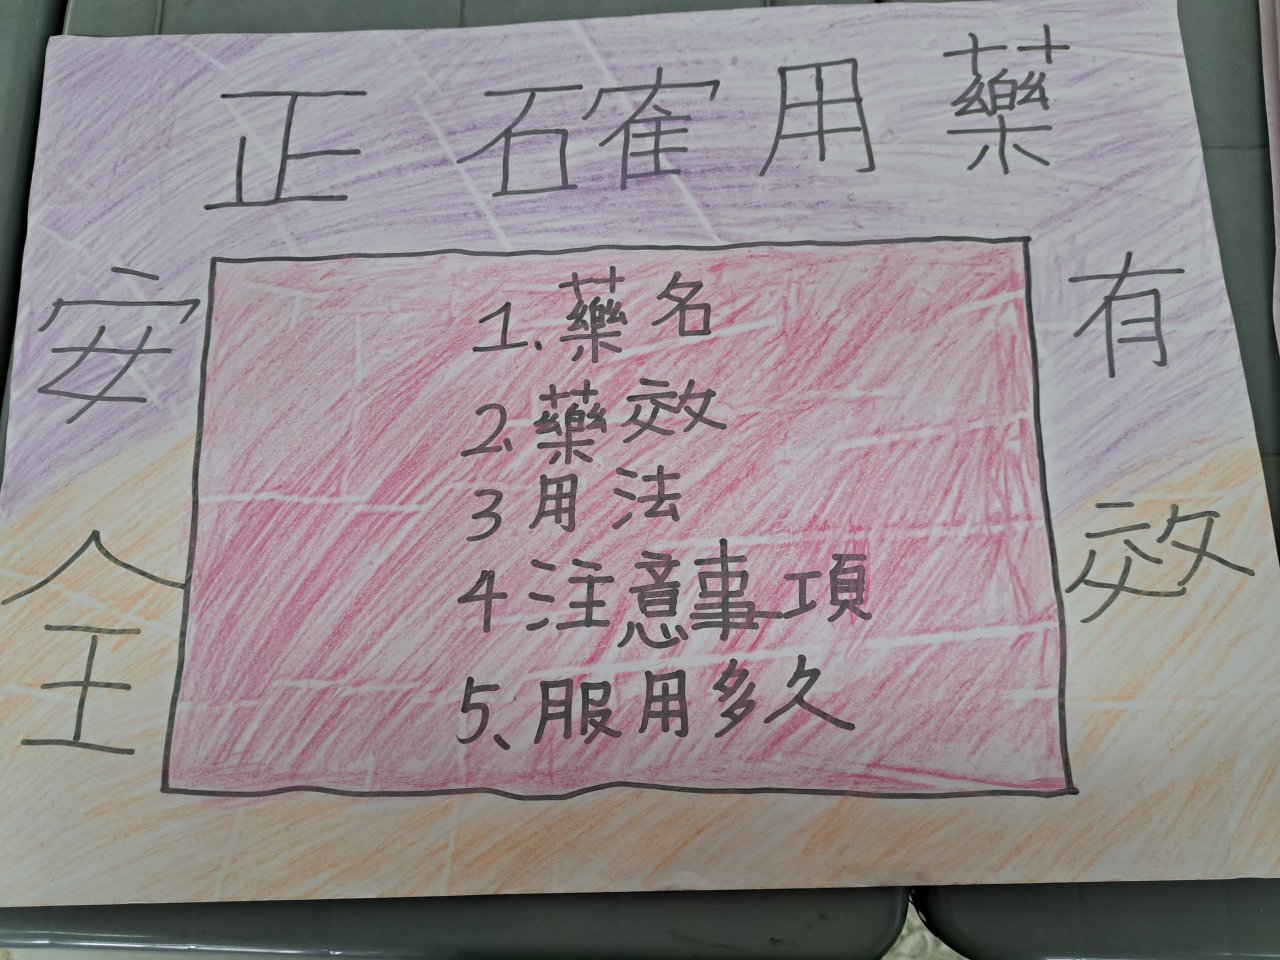 正確用藥
安全
有效
1、藥名
2、藥效
3用法
4注意事項
5、服用多久